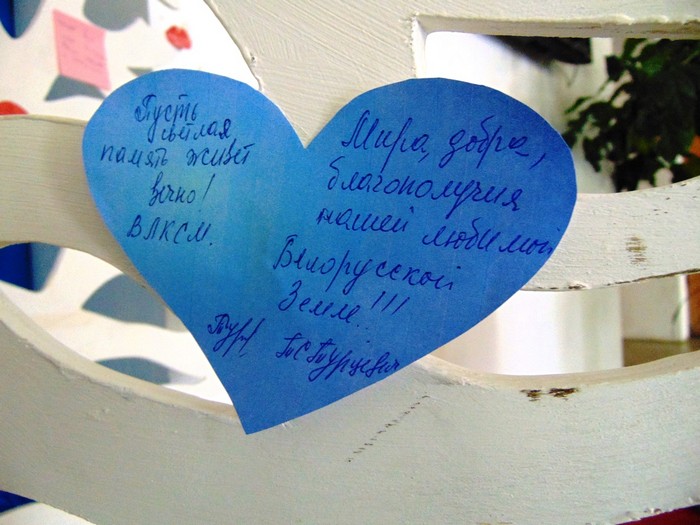 Пусть
светлая
память живёт
вечно!
ВЛКСМ.
Мира, добра,
благополучия
нашей любимой
Белорусской
Земле!!!